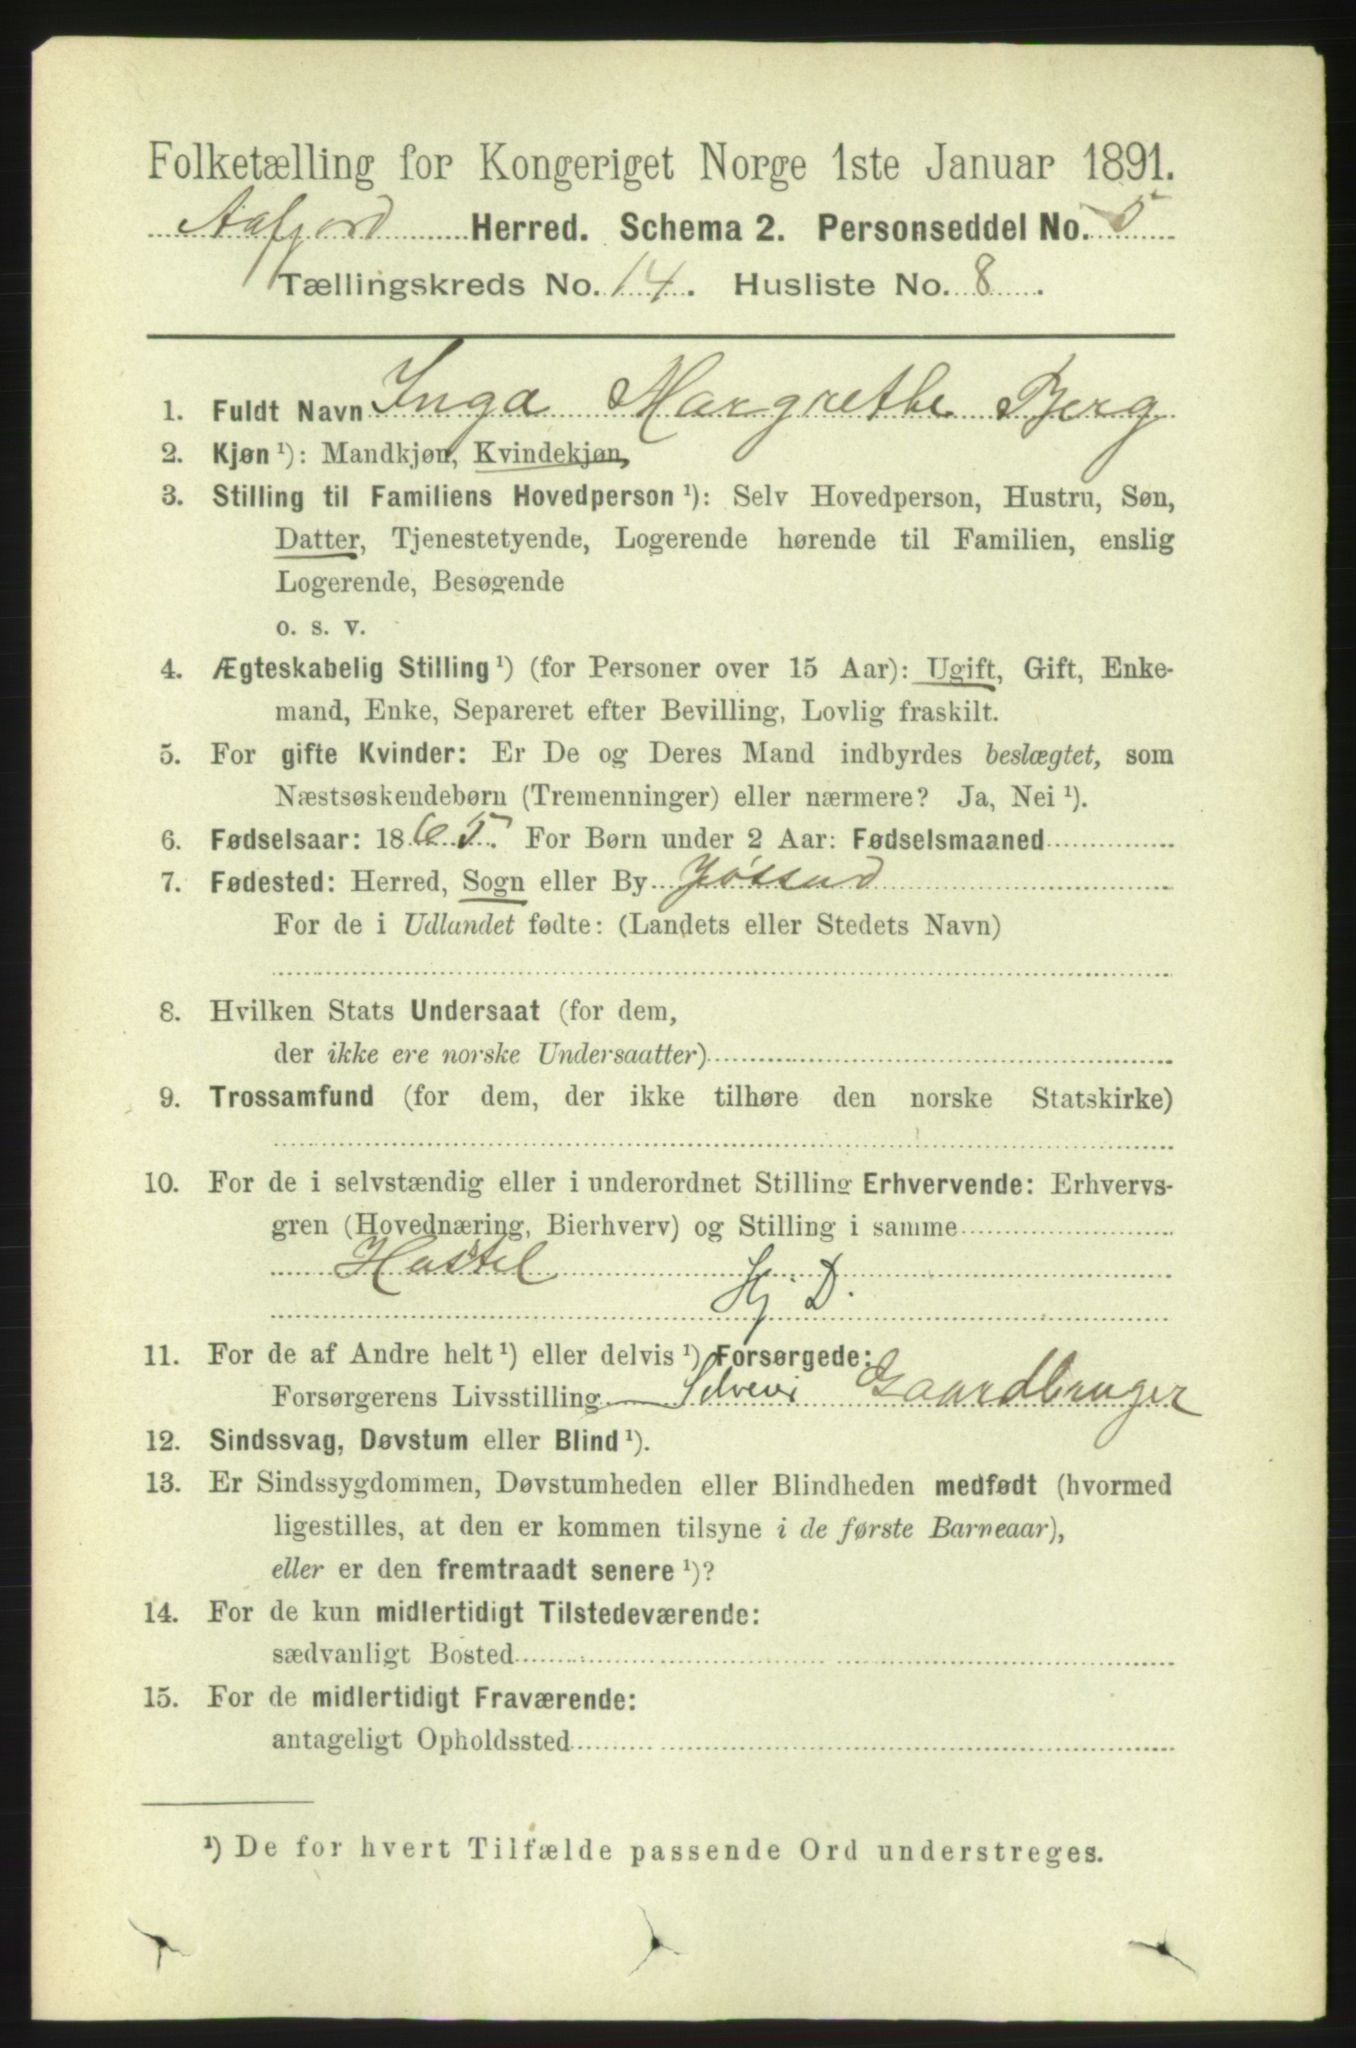 Folketælling for Kongeriget Norge 1ste Januar 1891.
Aafjord Herred. Schema 2. Personseddel No. 5
Tællingskreds No. 14. Husliste No. 8.
1. Fuldt Navn Inga Margrethe Berg
2. Kjøn ¹): Mandkjøn, Kvindekjøn,
3. Stilling til Familiens Hovedperson ¹): Selv Hovedperson, Hustru, Søn,
Datter, Tjenestetyende, Logerende hørende til Familien, enslig
Logerende, Besøgende
o. s. v.
4. Ægteskabelig Stilling ¹) (for Personer over 15 Aar): Ugift, Gift, Enke-
mand, Enke, Separeret efter Bevilling, Lovlig fraskilt.
5. For gifte Kvinder: Er De og Deres Mand indbyrdes beslægtet, som
Næstsøskendebørn (Tremenninger) eller nærmere? Ja, Nei ¹).
6. Fødselsaar: 1865. For Børn under 2 Aar: Fødselsmaaned
7. Fødested: Herred, Sogn eller By Jøssund
For de i Udlandet fødte: (Landets eller Stedets Navn)
8. Hvilken Stats Undersaat (for dem,
der ikke ere norske Undersaatter)
9. Trossamfund (for dem, der ikke tilhøre den norske Statskirke)
10. For de i selvstændig eller i underordnet Stilling Erhvervende: Erhvervs-
gren (Hovednæring, Bierhverv) og Stilling i samme
Husstel
Hj. D.
11. For de af Andre helt ¹) eller delvis ¹) Forsørgede:
Forsørgerens Livsstilling Selveier Gaardbruger
12. Sindssvag, Døvstum eller Blind ¹).
13. Er Sindssygdommen, Døvstumheden eller Blindheden medfødt (hvormed
ligestilles, at den er kommen tilsyne i de første Barneaar),
eller er den fremtraadt senere ¹)?
14. For de kun midlertidigt Tilstedeværende:
sædvanligt Bosted
15. For de midlertidigt Fraværende:
antageligt Opholdssted
¹) De for hvert Tilfælde passende Ord understreges.